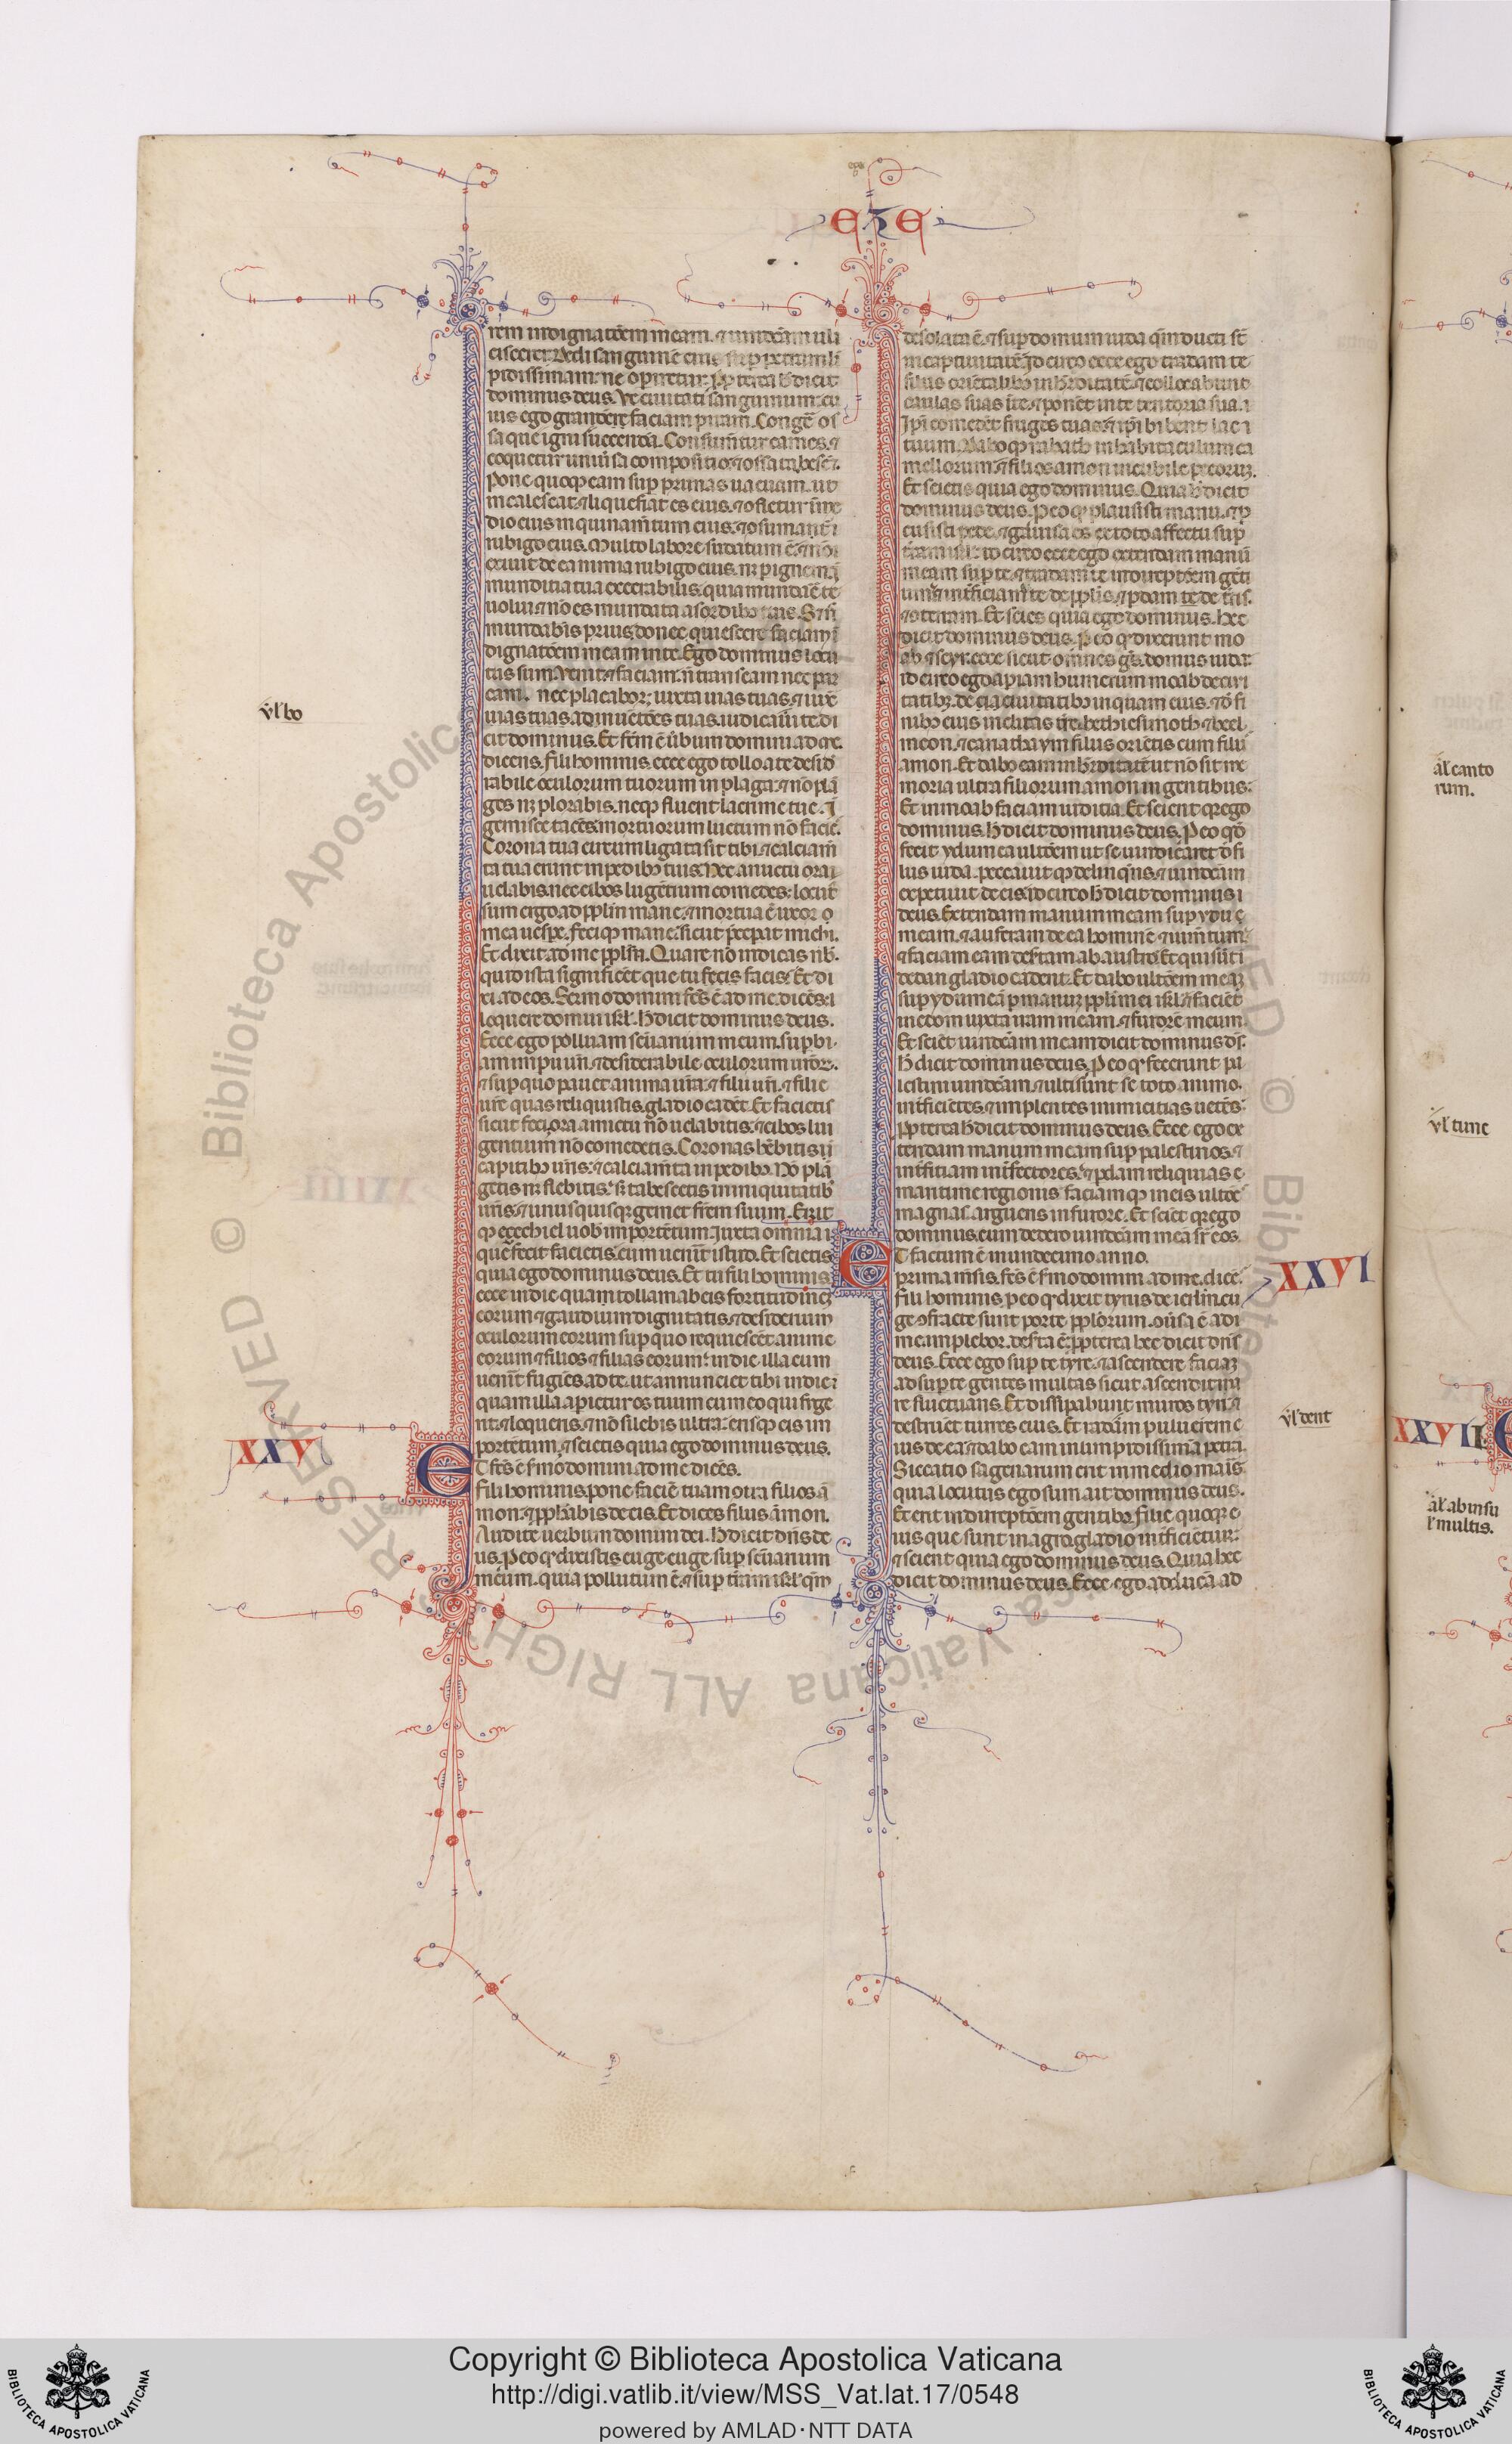 EZE
rem indignatōem meam. ⁊ uindcām uli
ciscerer. Dedi sanguinē eius sup petram li
pidissimam: ne opiretur. ppterea h dicit
dominus deus. Ve ciuitati sanguinum: cu
ius ego grandem faciam piram. Congē os
sa que igni succendā. Consumētur carnes. ⁊
coquetur uniūsa compositio ⁊ ossa tabescēt.
Pone quoqꝫ eam sup prunas uacuam. ut
incalescat ⁊ liquefiat es eius. ⁊ ɔfletur in me
dio eius inquinamtum eius. ⁊ ɔsumatur
rubigo eius. Multo labore sudatum ē ⁊ nō
exiuit de ea nimia rubigo eius. nꝫ p ignem.
munditia tua execrabilis: quia mundare te
uolui ⁊ nō es mundata a sordibꝫ tuis. S; n̄
mundabis prius donec quiescere faciam ī
dignatōem meam in te. Ego dominus locu
tus sum. Veniet ⁊ faciam. n̄ transeam nec par
cam. nec placabor: iuxta uias tuas. ⁊ iuxͣ
uias tuas. adinuētōes tuas. iudicaui te. di
cit dominus. Et fc̄m ē ūbum domini ad me.
dicens. Fili hominis. ecce ego tollo a te desid
rabile oculorum tuorum in plaga: ⁊ nō plā
ges nꝫ plorabis. neqꝫ fluent lacrime tue. I
gemisce tacēs. mortuorum luctum nō facie.
Corona tua circumligata sit tibi. ⁊ calciam
ta tua erunt in pedibꝫ tuis. Nec amictu ora
uelabis. nec cibos lugētium comedes: locut
sum ergo ad pplm mane. ⁊ mortua ē uxor
mea uespe. feciqꝫ mane: sicut p̄cepat michi.
Et dixit ad me pplus. Quare nō indicas nob.
quid ista significēt que tu fecis facis. Et di
xi ad eos. Sermo domini fcs ē ad me. dicēs: l
loquere domui isrl. h dicit dominus deus.
Ecce ego polluam sc̄uarium meum. supbi
am impii ur̄i. ⁊ desiderabile oculorum ur̄or.
⁊ sup quo pauet anima ur̄a. ⁊ filii ur̄i. ⁊ filie
ur̄e quas reliquistis. gladio cadēt. Et facietis
sicut feci. ora amictu nō uelabitis. ⁊ cibos lu
gentium nō comedetis. Coronas hēbitis in
capitibꝫ ur̄is. ⁊ calciam̄ta in pedibꝫ. Nō plā
getis nꝫ flebitis. s; tabescetis in iniquitatibꝫ
ur̄is. ⁊ unusquisqꝫ gemet ad fr̄em suum. Erit
qꝫ ezechiel uob in portētum. Iuxta omnia
que fecit facietis. cum uenīt istud. Et scietis
quia ego dominus deus. Et tu fili hominis
ecce in die quam tollam ab eis fortitudinē
eorum ⁊ gaudium dignitatis. ⁊ desiderium
oculorum eorum sup quo requiescēt anime
eorum ⁊ filios ⁊ filias eorum: in die illa cum
uenīt fugiēs ad te. ut annunciet tibi in die:
quam illa apietur os tuum cum eo qui fuge
rit. ⁊ loqueris. ⁊ nō silebis ultra. erisqꝫ eis in
portētum. ⁊ scietis quia ego dominus deus.
ET fcs ē s̄mo domini ad me dicēs.
Fili hominis. pone faciē tuam ɔtra filios ā
mon. ⁊ pphabis de eis. Et dices filiis āmon.
Audite uerbum domini dei. h dicit dn̄s de
us. P eo qꝫ dixistis euge euge sup sc̄uarium
meum. quia pollutum ē. ⁊ sup tr̄am isrl qm̄
desolata ē. ⁊ sup domum iuda qm̄ ducti st̄
in captiuitatē. Id circo ecce ego tradam te
filiis oriētalibꝫ in h̄editatē. ⁊ collocabunt
caulas suas ī te. ⁊ ponēt in te tentoria sua.
Ip̄i comedēt fruges tuas. ⁊ ip̄i bibent lac
tuum. Daboqꝫ rabath in habitaculum ca
mellorum. ⁊ filios amon in cubile pecorum.
Et scietis quia ego dominus. Quia h dicit
dominus deus. P eo qꝫ plausisti manu. ⁊ p
cussisti pede. ⁊ gauisa es ex toto affectu sup
tr̄am isrl. id circo ecce ego extendam manū
meam sup te. ⁊ tradam te in direptōem gēti
um. ⁊ int̄ficiam te de pplis. ⁊ pdam te de tr̄is.
⁊ ɔteram. Et scies quia ego dominus. hec
dicit dominus deus. P eo qꝫ dixerunt mo
ab ⁊ seyr. ecce sicut omnes gn̄s. domus iuda:
id circo ego apiam humerum moab de ciui
tatibꝫ. de ciuitatibꝫ inquam eius. ⁊ de fi
nibꝫ eius inclitas tr̄e. bethiesimoth. ⁊ beel
meon. ⁊ cariathaym filiis oriētis cum filiis
amon. Et dabo eam in h̄editatē ut nō sit me
moria ultra filiorum amon in gentibus:
Et in moab faciam iudicia. Et scient qꝫ ego
dominus. h dicit dominus deus. P eo qd
fecit ydumea ultōem ut se uindicaret d fi
liis iuda. peccauit qꝫ delinquēs. ⁊ uindcām
expetiuit de eis. id circo h dicit dominus
deus. Extendam manum meam sup ydu
meam. ⁊ auferam de ea hominē ⁊ iumtum.
⁊ faciam eam desertam ab austro. Et qui sūt ī
dedan gladio cadent. Et dabo ultōem meā
sup ydumeā p manū ppli mei isrl. ⁊ faciēt
in edom iuxta iram meam. ⁊ furorē meum.
Et sciēt uindcām meam dicit dominus ds.
h dicit dominus deus. P eo qꝫ fecerunt pa
lestini uindcām. ⁊ ulti sunt se toto animo.
int̄ficiētes. ⁊ implentes inimicitias uetēs:
ppterea h dicit dominus deus. Ecce ego ex
tendam manum meam sup palestinos. ⁊
int̄ficiam int̄fectores. ⁊ pdam reliquias
maritime regionis. faciamqꝫ in eis ultōes
magnas. arguens in furore. Et sciēt qꝫ ego
dominus. cum dedero uindcām meā sup eos.
ET factum ē in undecimo anno.
prima mēsis. fcs ē s̄mo domini ad me. dicē.
Fili hominis. p eo qꝫ dixit tyrus de ierlm. eu
ge. ɔfracte sunt porte pplorum. ɔuersa ē ad
me. implebor. deserta ē. ppterea hec dicit dn̄s
deus. Ecce ego sup te tyre. ⁊ ascendere faciam
ad sup te gentes multas sicut ascendit ma
re fluctuans. Et dissipabunt muros tyri. ⁊
destruēt turres eius. Et radam puluerem e
ius de ea. ⁊ dabo eam in limpidissimā petrā.
Siccatio sagenarum erit in medio maris.
quia locutus ego sum ait dominus deus.
Et erit in direptōem gentibꝫ. Filie quoqꝫ e
ius que sunt in agro. gladio int̄ficiētur:
⁊ scient quia ego dominus deus. Quia hec
dicit dominus deus. Ecce ego adducā ad
ul bo
XXV
XXVI
ul dent
al canto
rum.
ul tunc
XXVII
al ab insu
l multis.
Copyright © Biblioteca Apostolica Vaticana
http://digi.vatlib.it/view/MSS_Vat.lat.17/0548
powered by AMLAD·NTT DATA
BIBLIOTECA APOSTOLICA VATICANA
BIBLIOTECA APOSTOLICA VATICANA